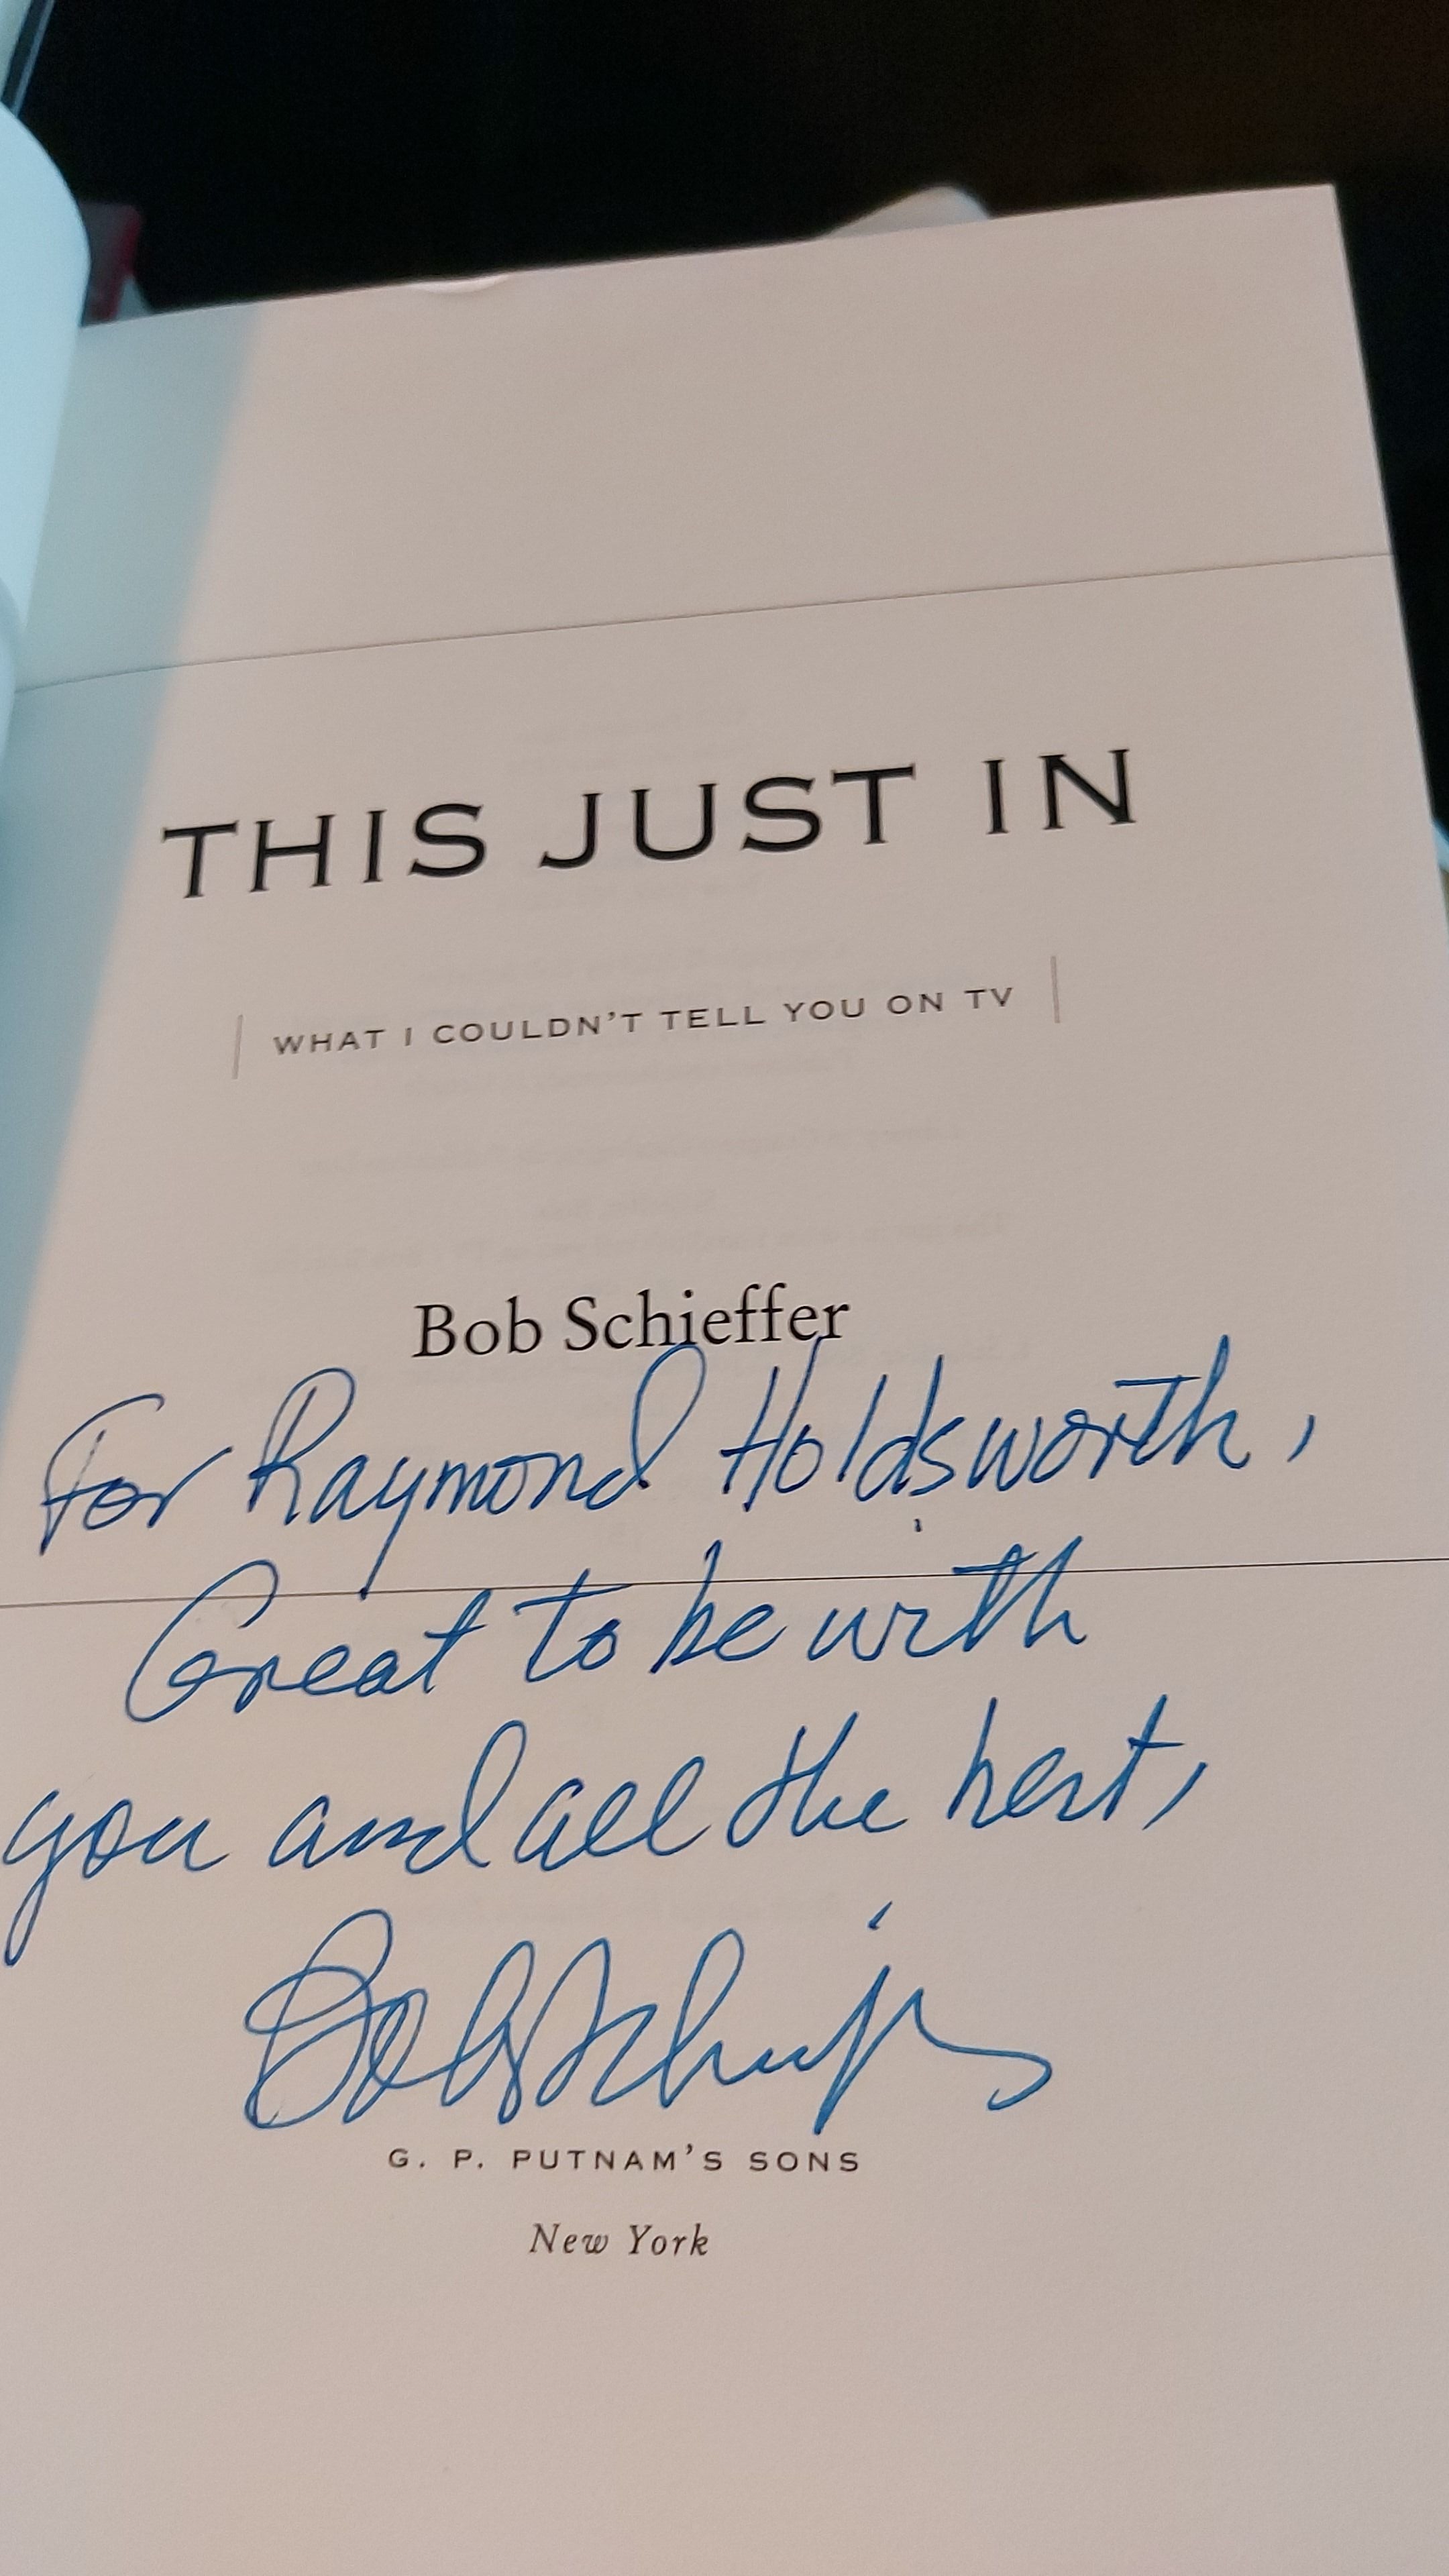 THIS JUST IN
WHAT I COULDN'T TELL YOU ON TV
Bob Schieffer
For Raymond Holdsworth,
Great to be with
you and all the best,
Bob Schieffer
G. P. PUTNAM'S SONS
New York